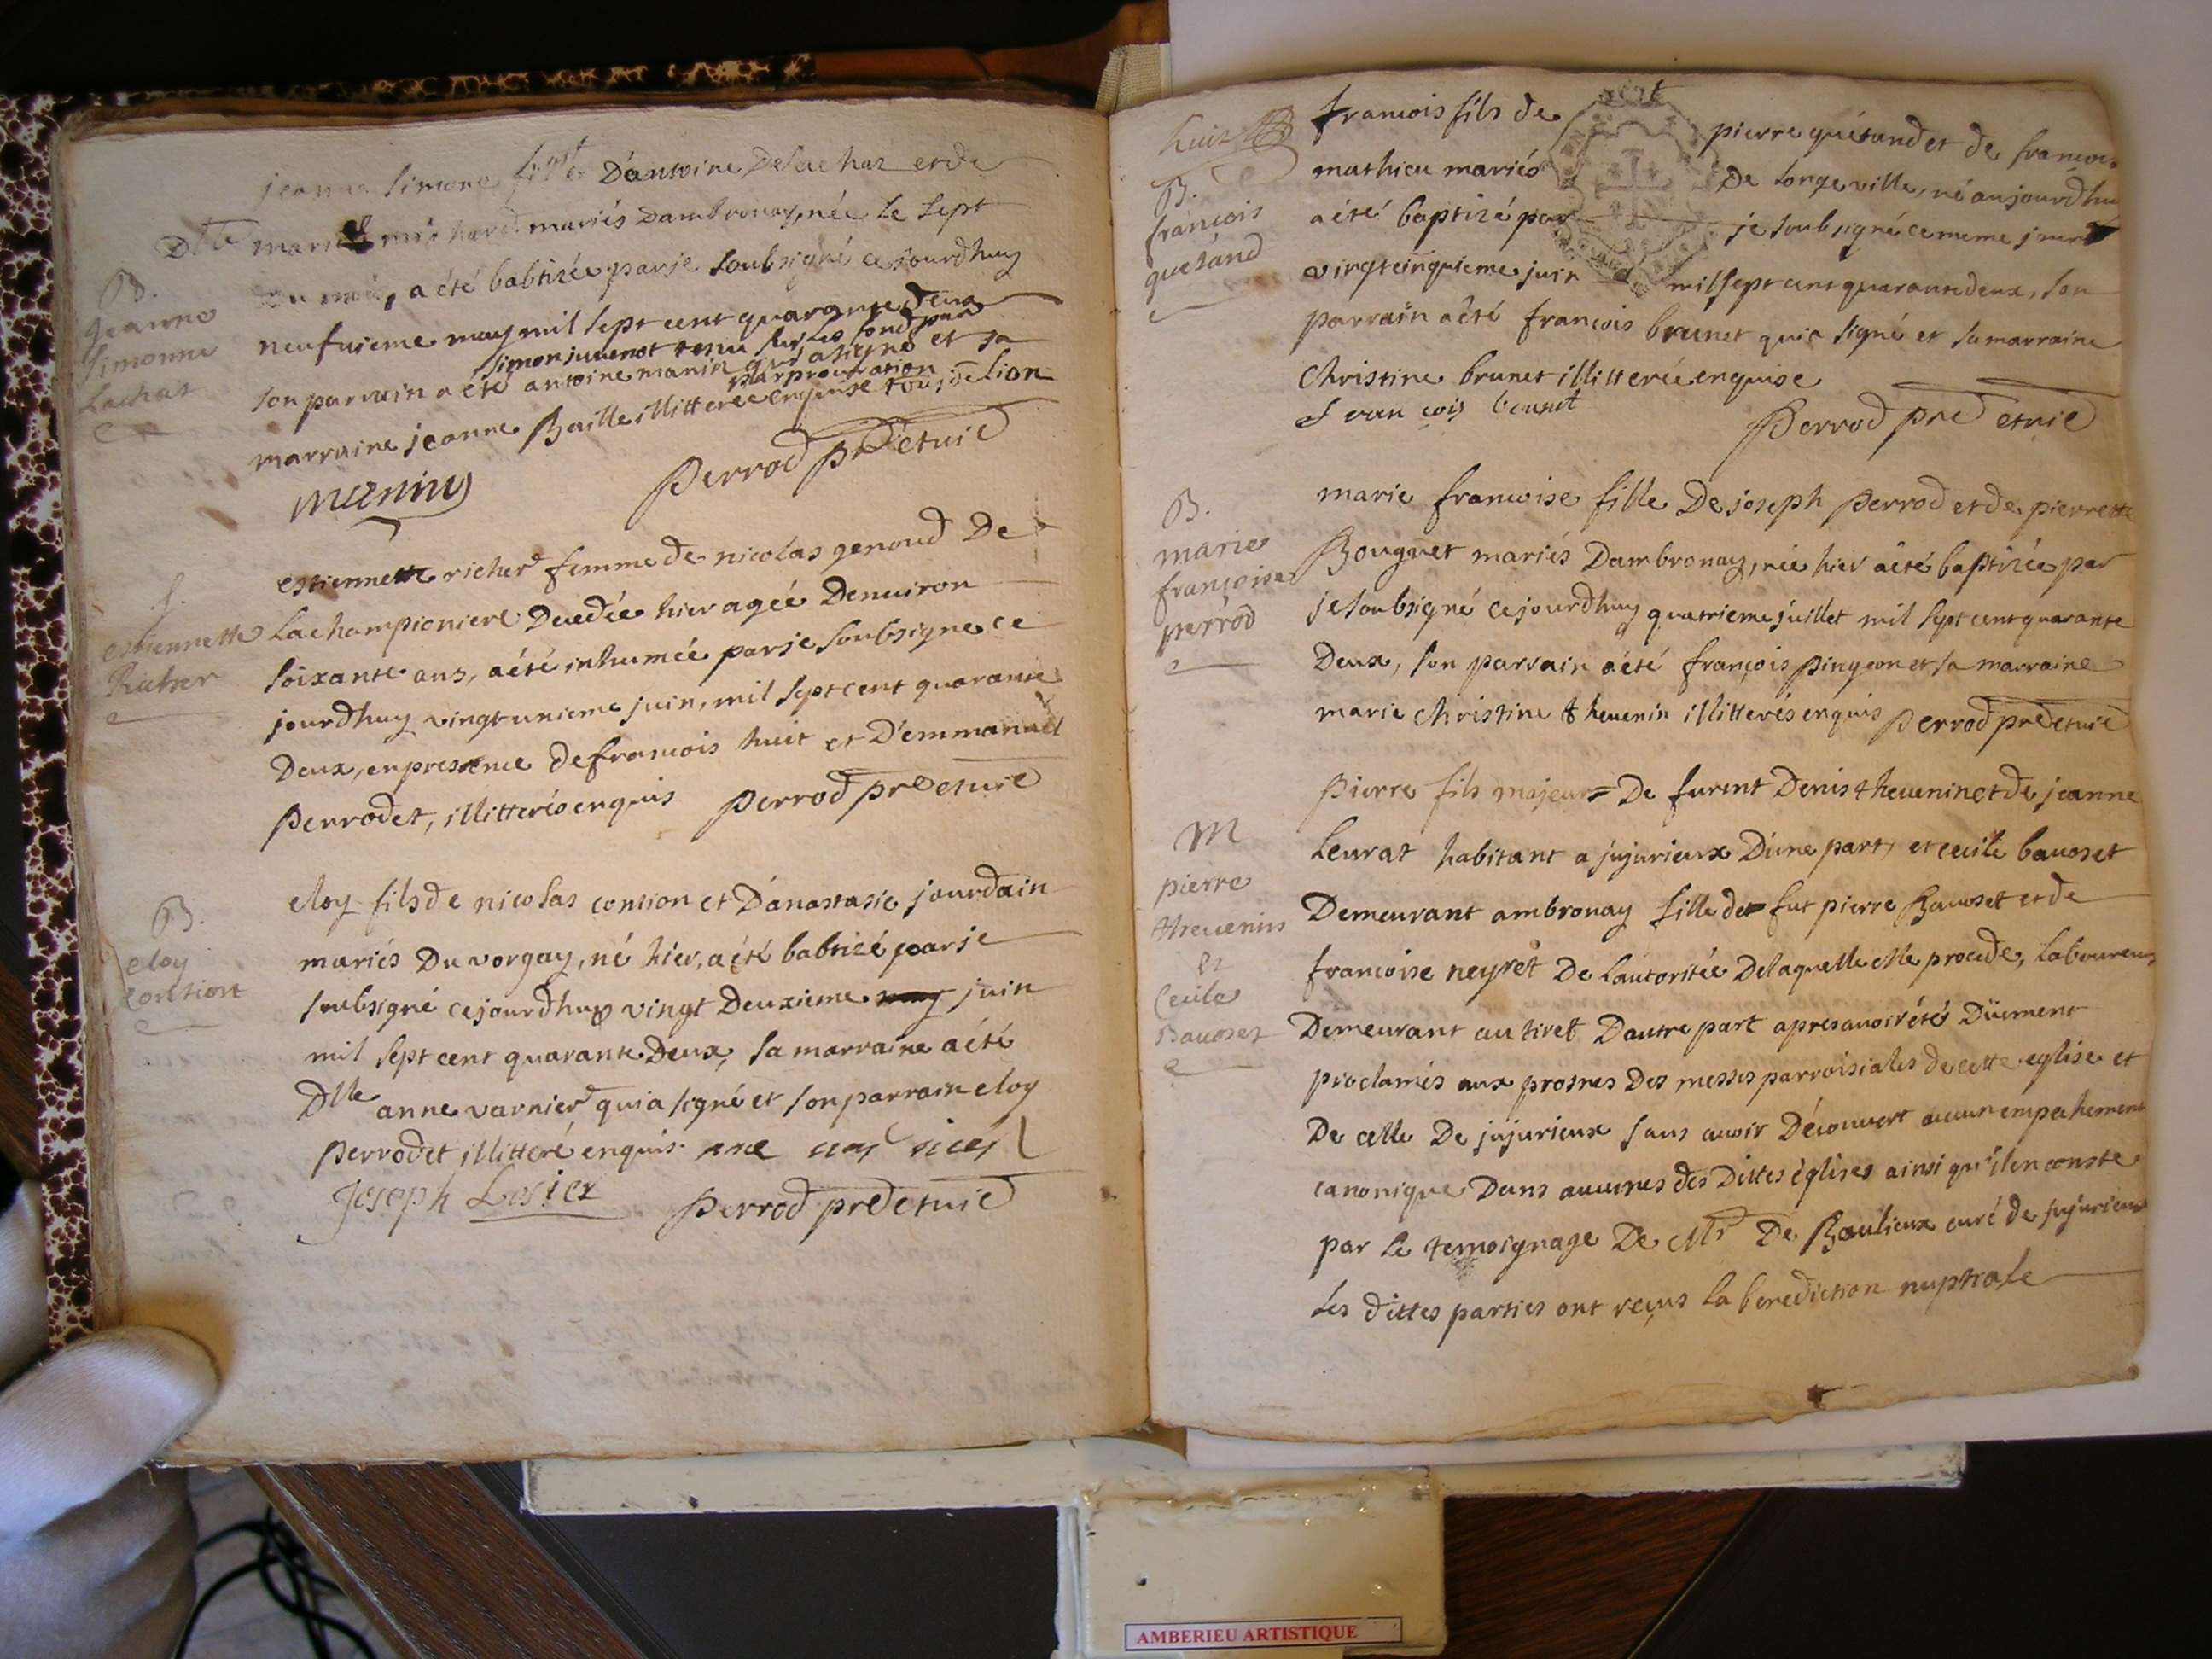 B.
jeanne
simonne
Lachat
jeanne simone fille D'antoine Delachaz et de
Dlle marie michard mariés Dambronay, née le sept
du mois, a été babtizée par je soubsigné cejourdhuy
neufuieme may mil sept cent quarante deux
simon juuenot tenu sur les fond par
son parrain a été antoine manin qui a signé et sa
par procuration
marraine jeanne Baille illitterée enquise tous de lion
manin Perrod pre et curé
S.
estiennette
Richer
estiennette richerd femme de nicolas genoud De
Lachampioniere Decedée hier agée Denuiron
soixante ans, a été inhumée par je soubsigne ce
jourdhuy vingt unieme juin, mil sept cent quarante
Deux, en presence de francois huit et D'emmanuel
Perrodet, illitterés enquis Perrod pre et curé
B.
eloy
contion
eloy fils de nicolas contion et D'anastasie jourdain
mariés Du vorgay, né hier, a été babtizé par je
soubsigné cejourdhuy vingt Deuxieme may juin
mil sept cent quarante Deux, sa marraine a été
Dlle anne varnier qui a signé et son parrain eloy
Perrodet illitteré enquis
Joseph Losier Perrod pre et curé
huit
B.
françois
guetand
francois fils de pierre guétand et de francoise
mathieu mariés De longeville, né aujourdhuy
a été baptizé par je soubsigné ce meme jour
vingt cinquieme juin mil sept cent quarante deux, son
parrain a été françois brunet qui a signé et sa marraine
Christine brunet illitterée enquise
francois brunet Perrod pre et curé
B.
marie
françoise
perrod
marie francoise fille De joseph Perrod et de pierrette
Bouguet mariés Dambronay, née hier a été baptizée par
je soubsigné cejourdhuy quatrieme juillet mil sept cent quarante
Deux, son parrain a été françois pingeon et sa marraine
marie christine theuenin illitterés enquis Perrod pre et curé
M
pierre
theuenin
et
Cecile
Bauoset
Pierre fils majeur De furent Denis theuenin et de jeanne
Leurat habitant a jujurieux D'une part, et cecile bauoset
Demeurant ambronay fille de fut pierre Bauoset et de
francoise neyret De lautoritée Delaquelle elle procede, laboureurs
Demeurant au tiret Dautre part apres auoir étés Düement
proclamés aux prosnes Des messes parroisiales de cette eglise et
De celle De jujurieux sans auoir Découuert aucun empechement
canonique Dans aucunes des Dittes églises ainsi qu'il en conste
par le temoignage De Mr De Baulieux curé de jujurieux
les dittes parties ont reçus la benediction nuptiale
AMBERIEU ARTISTIQUE